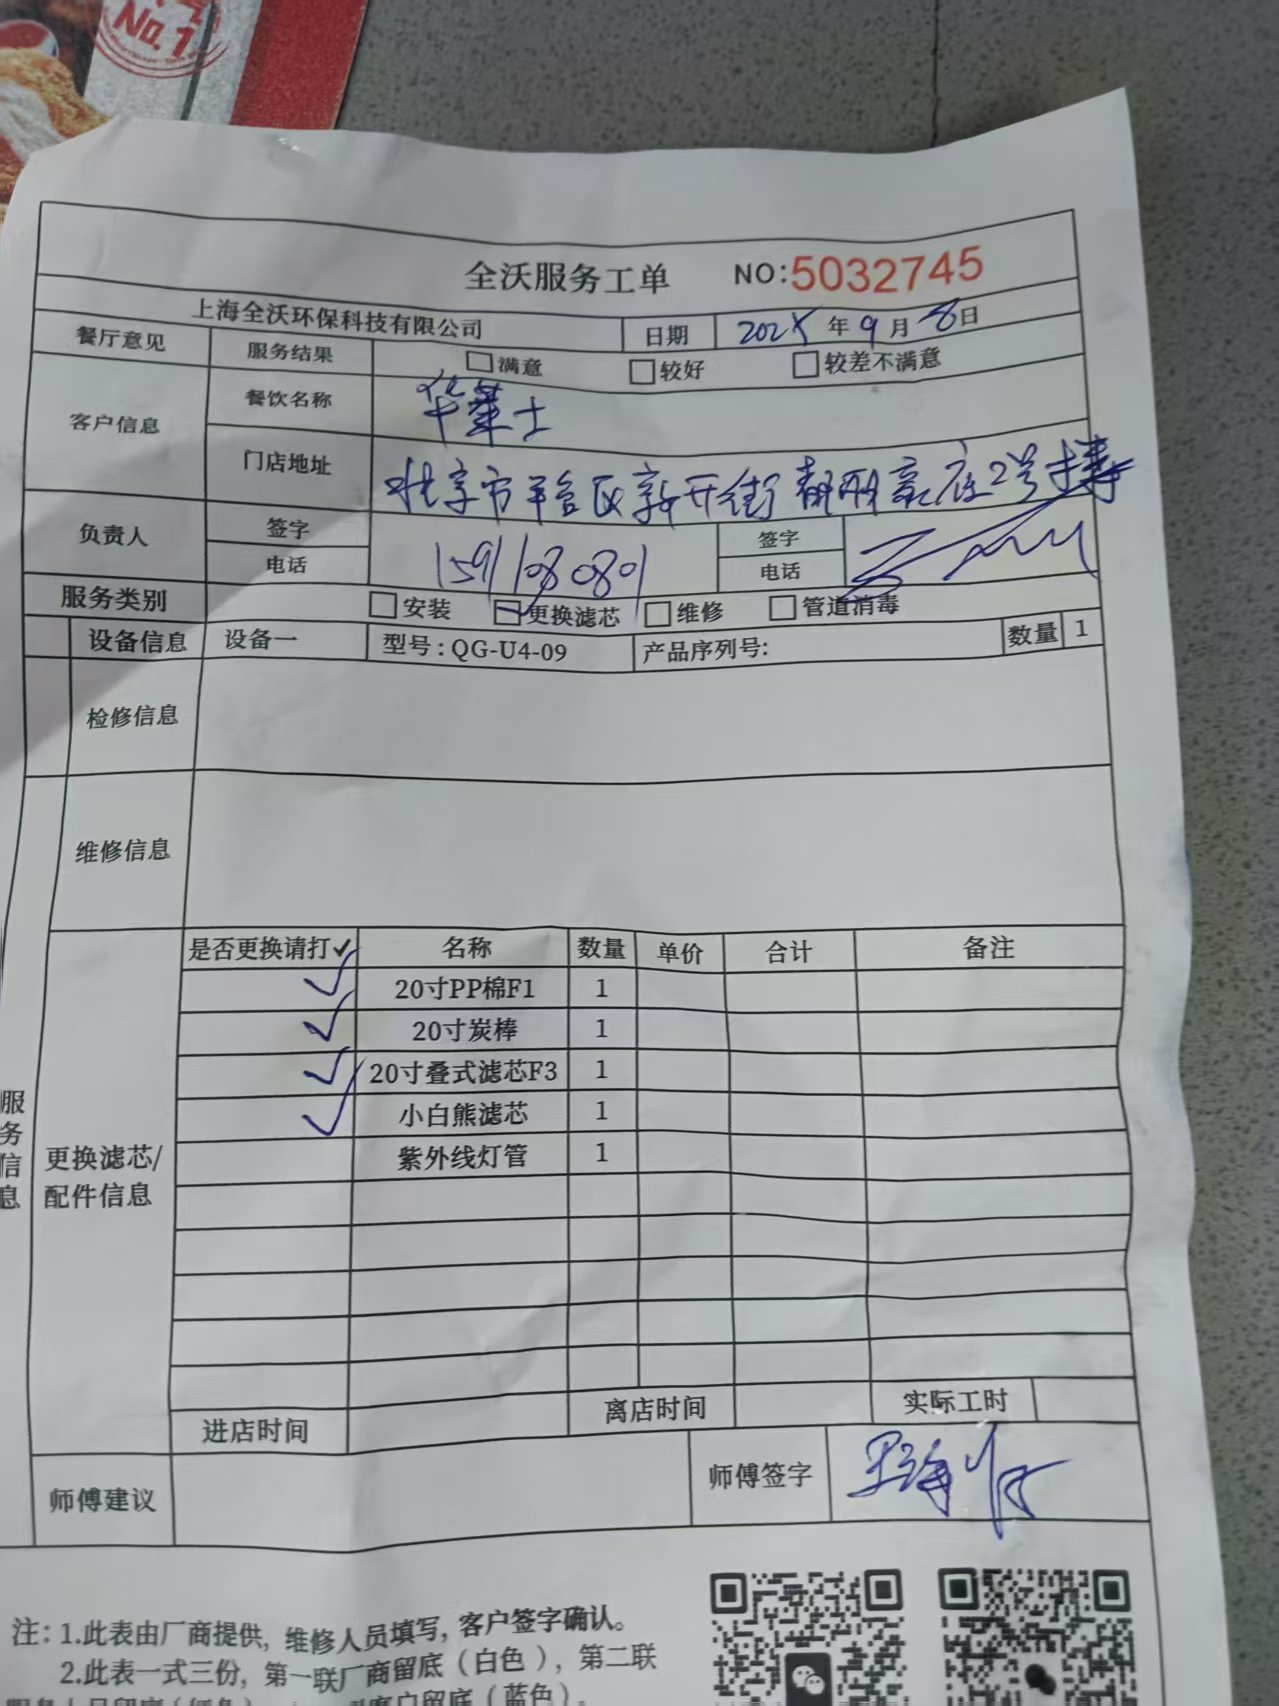 No.1
全沃服务工单 NO:5032745
上海全沃环保科技有限公司 日期 2025年9月8日
餐厅意见 服务结果 满意 较好 较差不满意
客户信息 餐饮名称 华莱士
门店地址 北京市平谷区新开街 都丽豪庭2号楼
负责人 签字 签字
电话 15911080801 电话
服务类别 安装 更换滤芯 维修 管道消毒
设备信息 设备一 型号:QG-U4-09 产品序列号: 数量 1
检修信息
维修信息
是否更换请打✓ 名称 数量 单价 合计 备注
✓ 20寸PP棉F1 1
✓ 20寸炭棒 1
✓ 20寸叠式滤芯F3 1
✓ 小白熊滤芯 1
紫外线灯管 1
服务信息
更换滤芯/
配件信息
进店时间 离店时间 实际工时
师傅建议 师傅签字
注:1.此表由厂商提供, 维修人员填写, 客户签字确认。
2.此表一式三份, 第一联厂商留底(白色), 第二联
客户留底(蓝色)。